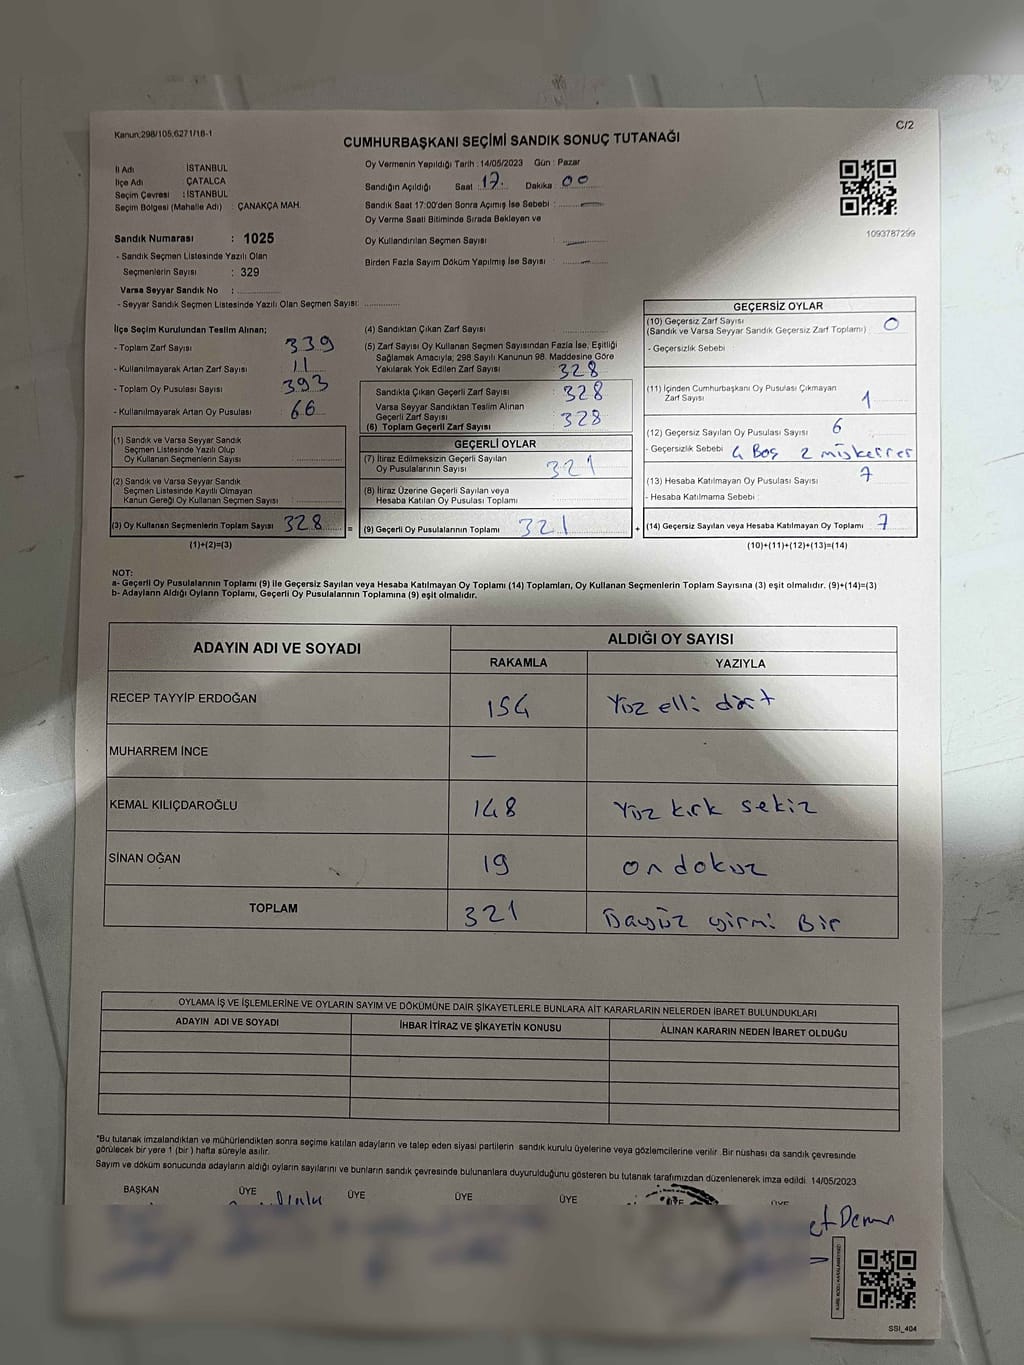 Kanun;298/105,6271/18-1
C/2
CUMHURBAŞKANI SEÇİMİ SANDIK SONUÇ TUTANAĞI
İl Adı İSTANBUL
İlçe Adı ÇATALCA
Seçim Çevresi : İSTANBUL
Seçim Bölgesi (Mahalle Adı) : ÇANAKÇA MAH.
Sandık Numarası : 1025
- Sandık Seçmen Listesinde Yazılı Olan
Seçmenlerin Sayısı : 329
Varsa Seyyar Sandık No :
- Seyyar Sandık Seçmen Listesinde Yazılı Olan Seçmen Sayısı:
Oy Vermenin Yapıldığı Tarih : 14/05/2023 Gün : Pazar
Sandığın Açıldığı Saat : 17. Dakika : 00
Sandık Saat 17:00'den Sonra Açımış İse Sebebi :
Oy Verme Saati Bitiminde Sırada Bekleyen ve
Oy Kullandırılan Seçmen Sayısı :
Birden Fazla Sayım Döküm Yapılmış İse Sayısı :
1093787299
İlçe Seçim Kurulundan Teslim Alınan;
- Toplam Zarf Sayısı : 339
- Kullanılmayarak Artan Zarf Sayısı : 11
- Toplam Oy Pusulası Sayısı : 393
- Kullanılmayarak Artan Oy Pusulası : 66
(1) Sandık ve Varsa Seyyar Sandık
Seçmen Listesinde Yazılı Olup
Oy Kullanan Seçmenlerin Sayısı :
(2) Sandık ve Varsa Seyyar Sandık
Seçmen Listesinde Kayıtlı Olmayan
Kanun Gereği Oy Kullanan Seçmen Sayısı :
(3) Oy Kullanan Seçmenlerin Toplam Sayısı 328 =
(1)+(2)=(3)
(4) Sandıktan Çıkan Zarf Sayısı :
(5) Zarf Sayısı Oy Kullanan Seçmen Sayısından Fazla İse, Eşitliği
Sağlamak Amacıyla; 298 Sayılı Kanunun 98. Maddesine Göre
Yakılarak Yok Edilen Zarf Sayısı : 328
Sandıkla Çıkan Geçerli Zarf Sayısı : 328
Varsa Seyyar Sandıktan Teslim Alınan
Geçerli Zarf Sayısı : 328
(6) Toplam Geçerli Zarf Sayısı
GEÇERLİ OYLAR
(7) İtiraz Edilmeksizin Geçerli Sayılan
Oy Pusulalarının Sayısı : 321
(8) İtiraz Üzerine Geçerli Sayılan veya
Hesaba Katılan Oy Pusulası Toplamı :
(9) Geçerli Oy Pusulalarının Toplamı 321 +
GEÇERSİZ OYLAR
(10) Geçersiz Zarf Sayısı
(Sandık ve Varsa Seyyar Sandık Geçersiz Zarf Toplamı) : 0
- Geçersizlik Sebebi :
(11) İçinden Cumhurbaşkanı Oy Pusulası Çıkmayan
Zarf Sayısı : 1
(12) Geçersiz Sayılan Oy Pusulası Sayısı : 6
- Geçersizlik Sebebi : 4 Boş 2 müşkerrer
(13) Hesaba Katılmayan Oy Pusulası Sayısı : 7
- Hesaba Katılmama Sebebi :
(14) Geçersiz Sayılan veya Hesaba Katılmayan Oy Toplamı 7
(10)+(11)+(12)+(13)=(14)
NOT:
a- Geçerli Oy Pusulalarının Toplamı (9) ile Geçersiz Sayılan veya Hesaba Katılmayan Oy Toplamı (14) Toplamları, Oy Kullanan Seçmenlerin Toplam Sayısına (3) eşit olmalıdır. (9)+(14)=(3)
b- Adayların Aldığı Oyların Toplamı, Geçerli Oy Pusulalarının Toplamına (9) eşit olmalıdır.
ADAYIN ADI VE SOYADI ALDIĞI OY SAYISI
RAKAMLA YAZIYLA
RECEP TAYYİP ERDOĞAN 154 Yüz elli dört
MUHARREM İNCE —
KEMAL KILIÇDAROĞLU 148 Yüz kırk sekiz
SİNAN OĞAN 19 on dokuz
TOPLAM 321 üçyüz yirmi Bir
OYLAMA İŞ VE İŞLEMLERİNE VE OYLARIN SAYIM VE DÖKÜMÜNE DAİR ŞİKAYETLERLE BUNLARA AİT KARARLARIN NELERDEN İBARET BULUNDUKLARI
ADAYIN ADI VE SOYADI İHBAR İTİRAZ VE ŞİKAYETİN KONUSU ALINAN KARARIN NEDEN İBARET OLDUĞU
*Bu tutanak imzalandıktan ve mühürlendikten sonra seçime katılan adayların ve talep eden siyasi partilerin sandık kurulu üyelerine veya gözlemcilerine verilir. Bir nüshası da sandık çevresinde
görülecek bir yere 1 (bir) hafta süreyle asılır.
Sayım ve döküm sonucunda adayların aldığı oyların sayılarını ve bunların sandık çevresinde bulunanlara duyurulduğunu gösteren bu tutanak tarafımızdan düzenlenerek imza edildi. 14/05/2023
BAŞKAN ÜYE ÜYE ÜYE ÜYE ÜYE ÜYE
SSİ_404